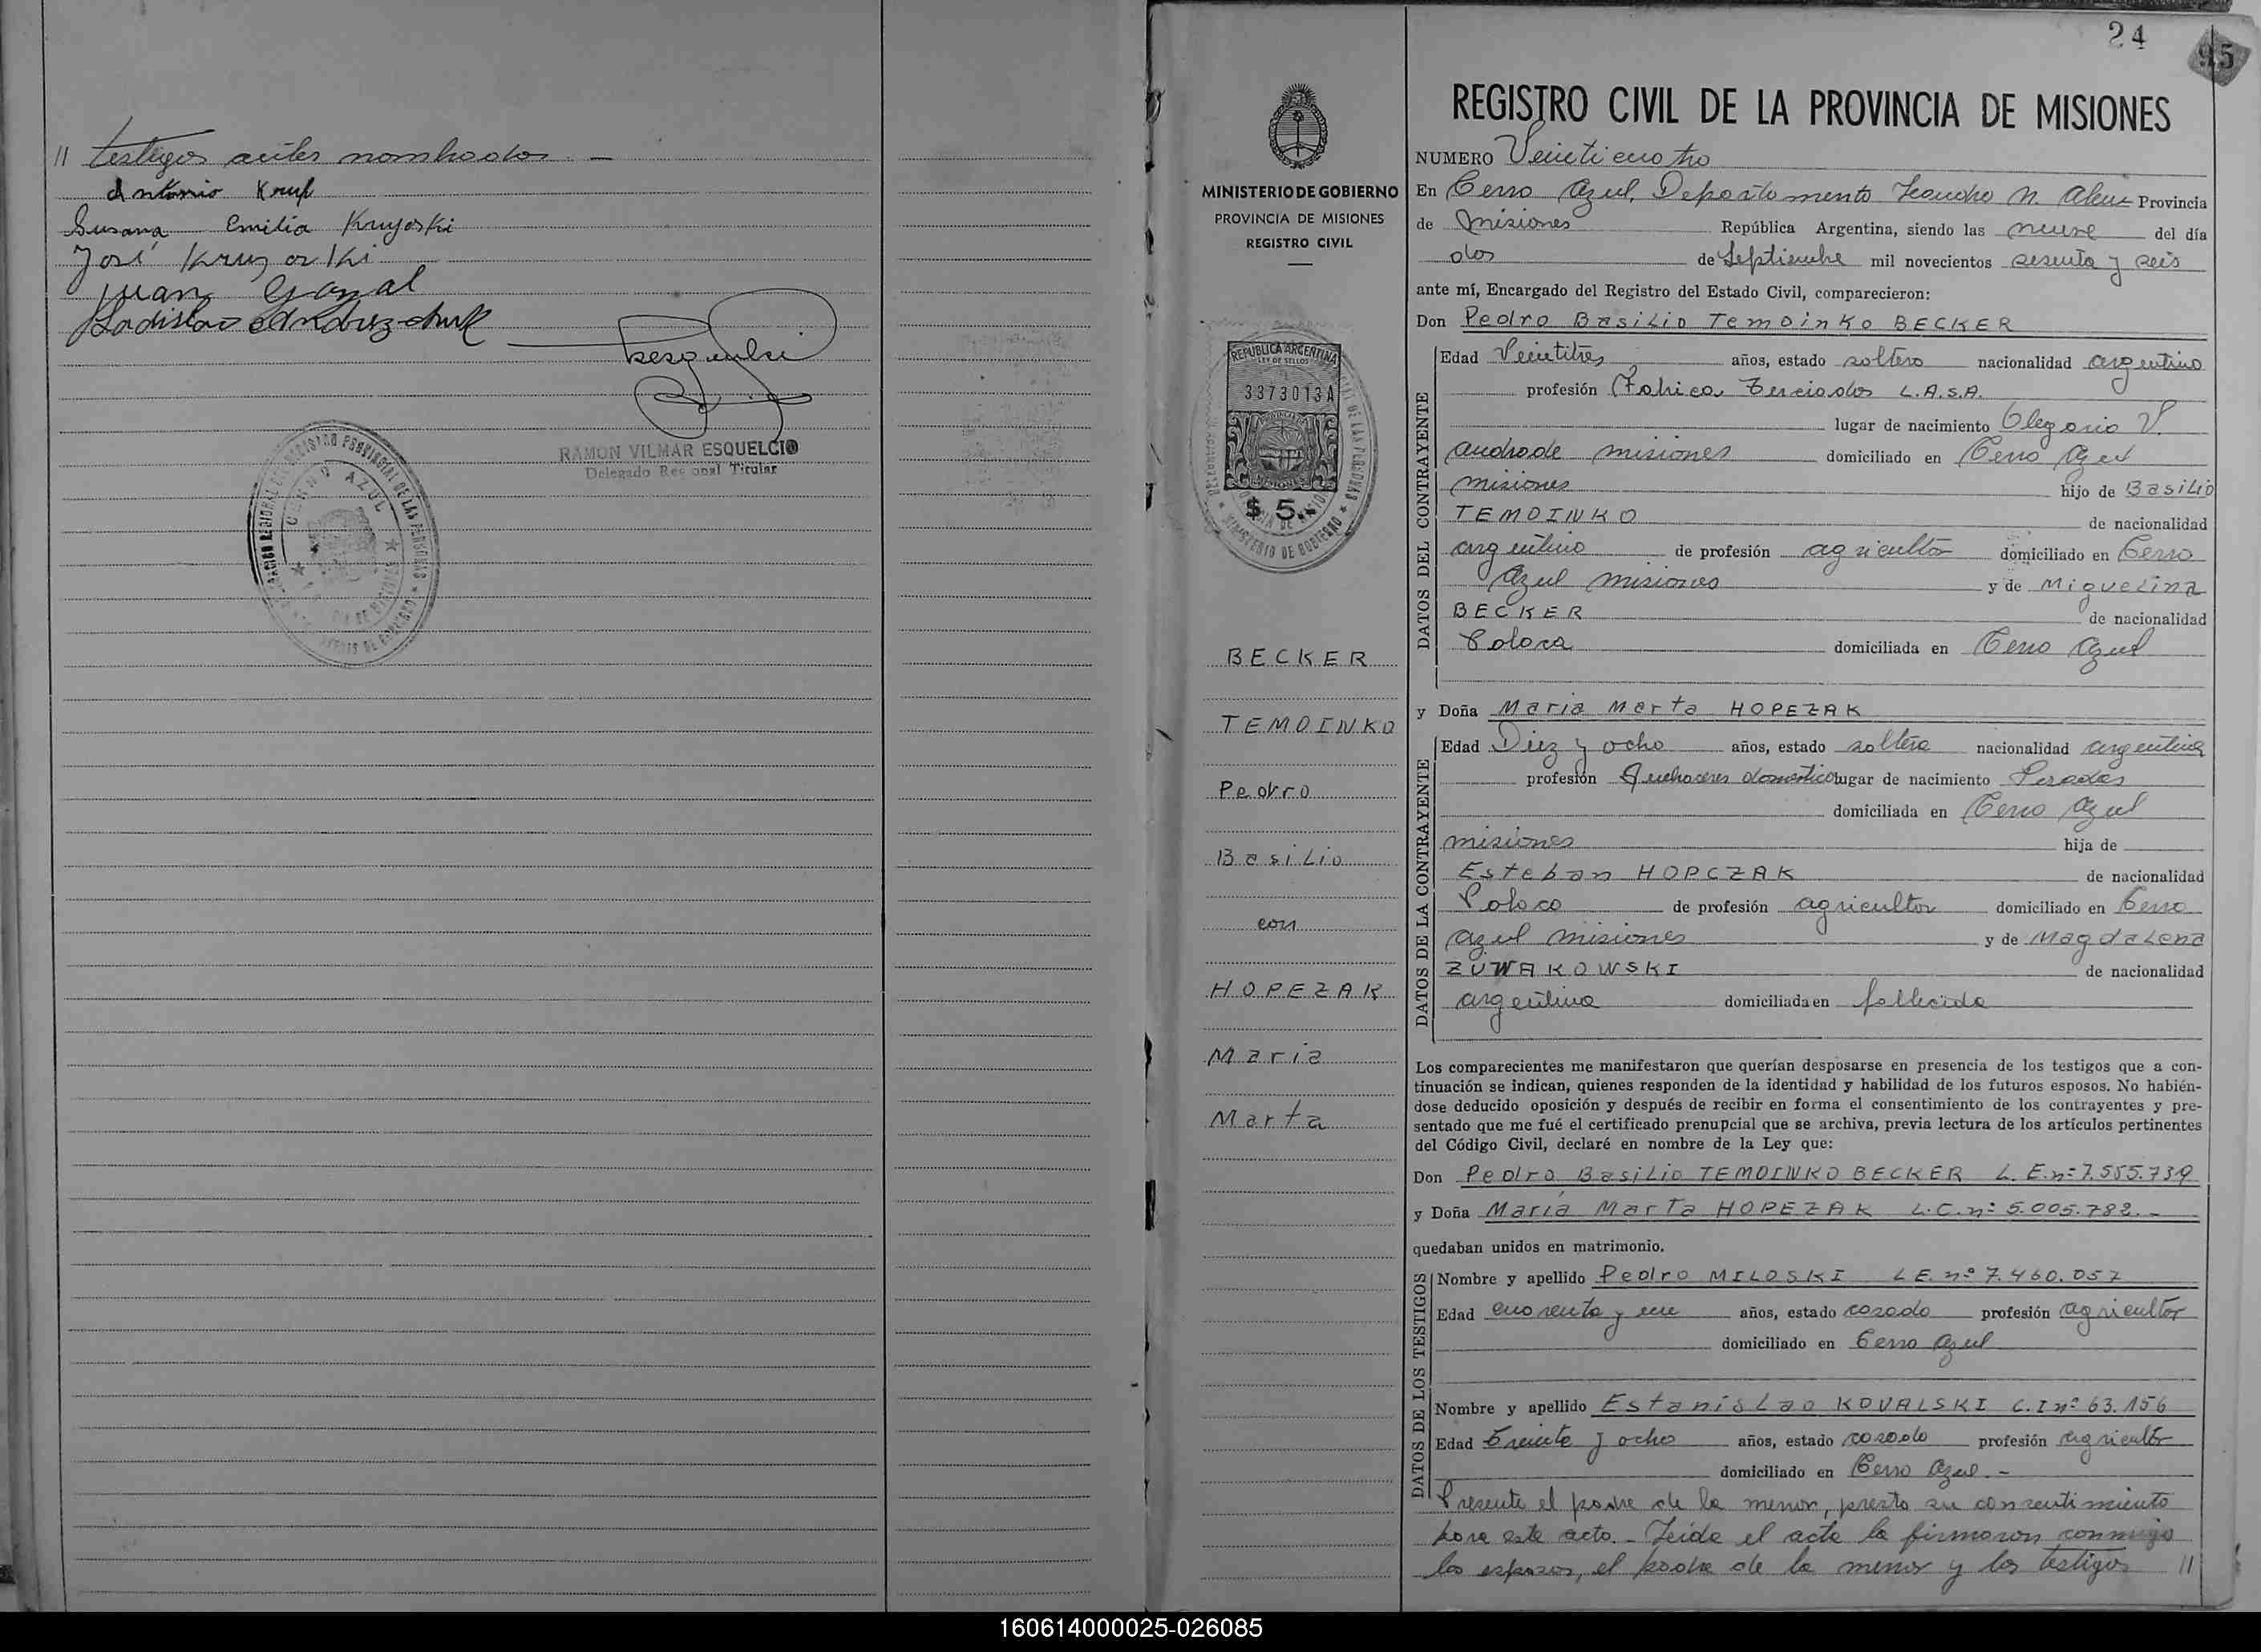 // testigos antes nombrados. —
Antonio Krup
Susana Emilia Kruyoski
José Kruzoski
Juan Gazal
Ladislao Andruzchuk
RAMON VILMAR ESQUELCIO
Delegado Regional Titular
CERRO AZUL
24
95
MINISTERIO DE GOBIERNO
PROVINCIA DE MISIONES
REGISTRO CIVIL
REPUBLICA ARGENTINA
LEY DE SELLOS
3373013A
MISIONES
$ 5.-
MINISTERIO DE GOBIERNO
BECKER
TEMOINKO
Pedro
Basilio
con
HOPEZAK
Maria
Marta
REGISTRO CIVIL DE LA PROVINCIA DE MISIONES
NUMERO Veinticuatro
En Cerro Azul, Departamento Leandro N. Alem Provincia
de Misiones República Argentina, siendo las nueve del día
dos de Septiembre mil novecientos sesenta y seis
ante mí, Encargado del Registro del Estado Civil, comparecieron:
Don Pedro Basilio Temoinko BECKER
DATOS DEL CONTRAYENTE
Edad Veintitres años, estado soltero nacionalidad argentino
profesión Fabrica Terciados L.A.S.A.
lugar de nacimiento Olegario V.
Andrade Misiones domiciliado en Cerro Azul
Misiones hijo de Basilio
TEMOINKO de nacionalidad
argentino de profesión agricultor domiciliado en Cerro
Azul Misiones y de Miguelina
BECKER de nacionalidad
Polaca domiciliada en Cerro Azul
y Doña Maria Marta HOPEZAK
DATOS DE LA CONTRAYENTE
Edad Diez y ocho años, estado soltera nacionalidad argentina
profesión Quehaceres domesticos lugar de nacimiento Posadas
domiciliada en Cerro Azul
Misiones hija de
Esteban HOPCZAK de nacionalidad
Polaco de profesión agricultor domiciliado en Cerro
Azul Misiones y de Magdalena
ZUWAKOWSKI de nacionalidad
argentina domiciliada en fallecida
Los comparecientes me manifestaron que querían desposarse en presencia de los testigos que a con-
tinuación se indican, quienes responden de la identidad y habilidad de los futuros esposos. No habién-
dose deducido oposición y después de recibir en forma el consentimiento de los contrayentes y pre-
sentado que me fué el certificado prenupcial que se archiva, previa lectura de los artículos pertinentes
del Código Civil, declaré en nombre de la Ley que:
Don Pedro Basilio TEMOINKO BECKER L.E.nº 7.555.739
y Doña María Marta HOPEZAK L.C.nº 5.005.782.-
quedaban unidos en matrimonio.
DATOS DE LOS TESTIGOS
Nombre y apellido Pedro MILOSKI L.E. nº 7.460.057
Edad cuarenta y un años, estado casado profesión agricultor
domiciliado en Cerro Azul
Nombre y apellido Estanislao KOVALSKI C.I nº 63.156
Edad Treinta y ocho años, estado casado profesión agricultor
domiciliado en Cerro Azul.-
Presente el padre de la menor, presta su consentimiento
para este acto.- Leída el acta la firmaron conmigo
los esposos, el padre de la menor y los testigos //
160614000025-026085